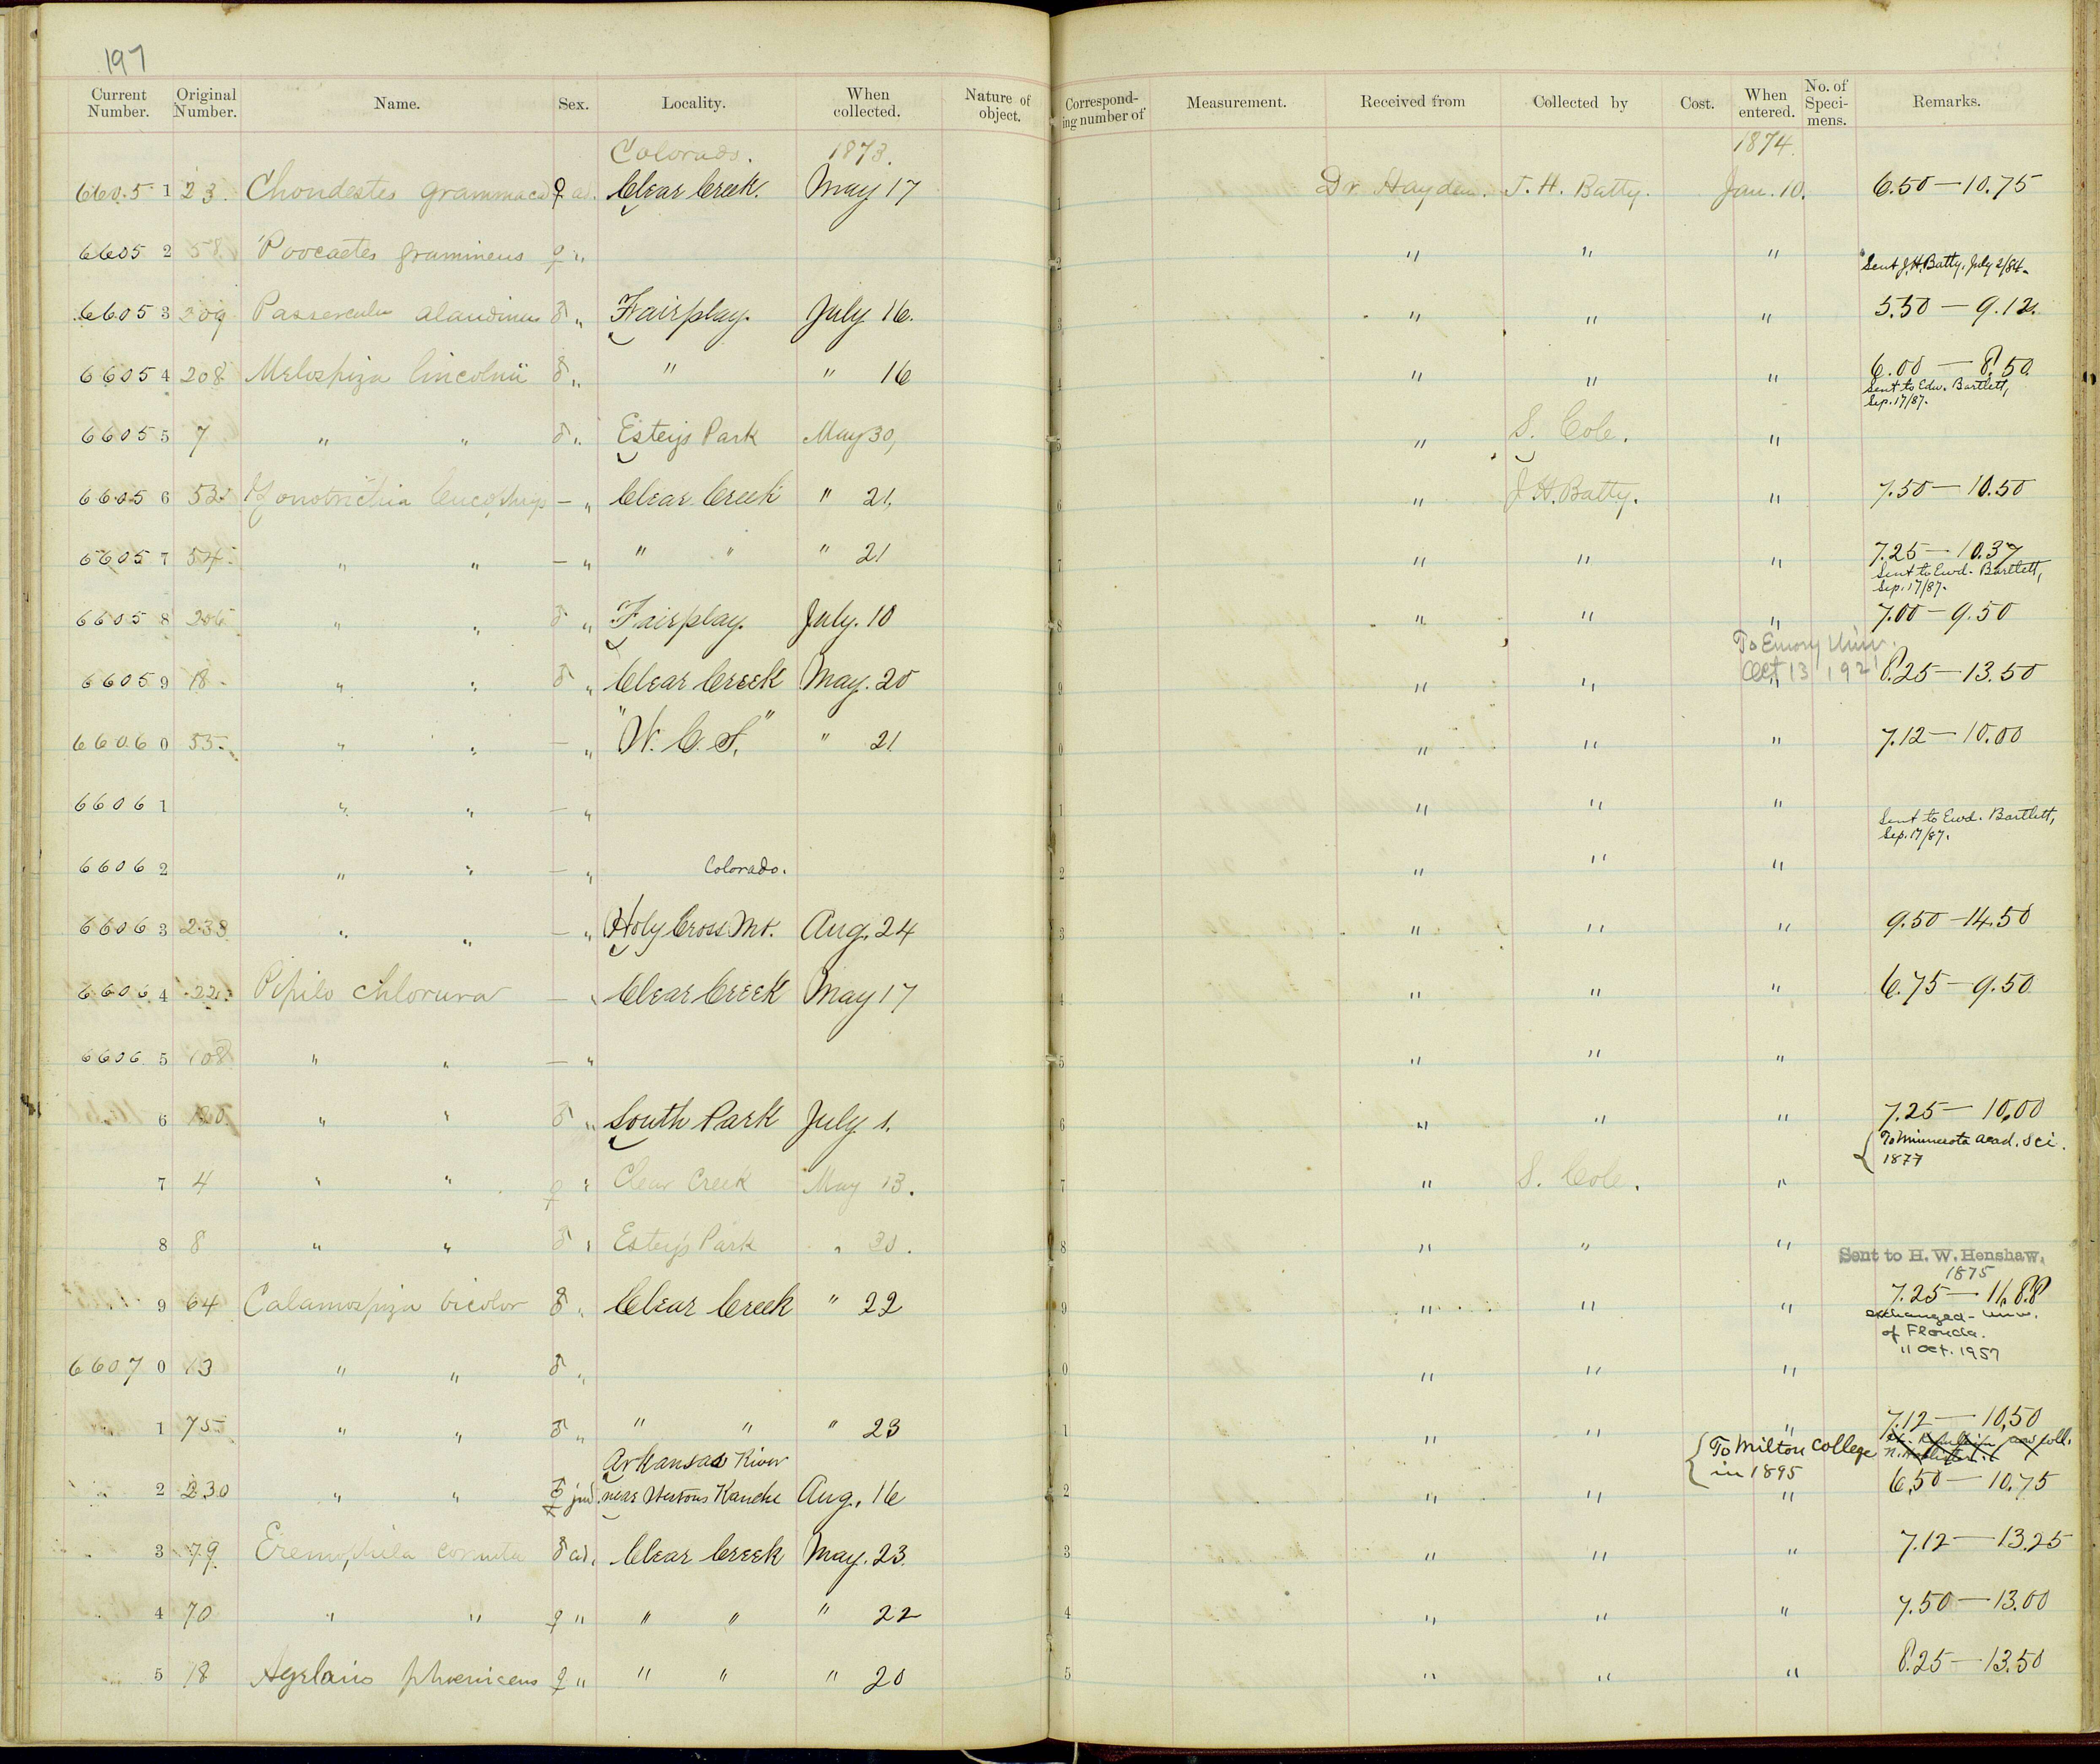 197
Current Number. Original Number. Name. Sex. Locality. When collected. Nature of object. Corresponding number of Measurement. Received from Collected by Cost. When entered. No. of Specimens. Remarks.
Colorado. 1873. 1874.
66051 23. Chondestes grammaca ♀ ad. Clear Creek. May 17 1 Dr. Hayden. J. H. Batty. Jan. 10. 6.50—10.75
66052 58 Poocaetes gramineus ♀ " 2 " " " Sent J. H. Batty, July 2/84.
66053 209 Passerculus alaudinus ♂ " Fairplay. July 16. 3 " " " 5.50—9.12.
66054 208 Melospiza lincolnii ♂ " " " 16 4 " " " 6.00—8.50
Sent to Edw. Bartlett,
Sep. 17/87.
66055 7 " " ♂ " Esteys Park May 30, 5 " S. Cole. "
66056 52 Zonotrichia leucophrys — " Clear Creek " 21. 6 " J. H. Batty. " 7.50—10.50
66057 54. " " — " " " " 21 7 " " " 7.25—10.37
Sent to Ewd. Bartlett,
Sep. 17/87.
66058 206 " " ♂ " Fairplay. July. 10 8 " " " 7.00—9.50
To Emory Univ.
Oct 13 1921
66059 18. " " ♂ " Clear Creek May. 20 9 " " " 8.25—13.50
66060 55. " " — " "W. C. S." " 21 0 " " " 7.12—10.00
66061 " " — " 1 " " " Sent to Ewd. Bartlett,
Sep. 17/87.
66062 " " — " Colorado. 2 " " "
66063 238 " " — " Holy Cross Mt. Aug. 24 3 " " " 9.50—14.50
66064 22. Pipilo chlorura — " Clear Creek May 17 4 " " " 6.75—9.50
66065 108 " " — " 5 " " "
6 180 " " ♂ " South Park July 1. 6 " " " 7.25—10.00
To Minnesota Acad. Sci.
1877
7 4 " " ♀ " Clear Creek May 13. 7 " S. Cole. "
8 8 " " ♂ " Esteys Park " 30. 8 " " " Sent to H. W. Henshaw.
1875
9 64 Calamospiza bicolor ♂ " Clear Creek " 22 9 " " " 7.25—11.88
exchanged - Univ.
of Florida.
11 Oct. 1957
66070 13 " " ♂ " 0 " " "
1 75 " " ♂ " " " " 23 1 " " " 7.12—10.50
To Milton College
in 1895
Arkansas River
2 230 " " ♀ juv. near Ranche Aug. 16 2 " " " 6.50—10.75
3 79 Eremophila cornuta ♂ ad. Clear Creek May. 23. 3 " " " 7.12—13.25
4 70 " " ♀ " " " " 22 4 " " " 7.50—13.00
5 18 Agelaius phoeniceus ♀ " " " " 20 5 " " " 8.25—13.50